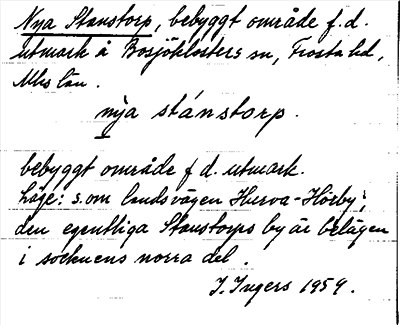 Nya Stanstorp, bebyggt område f.d.
utmark å Bosjöklosters sn, Frosta hd,
Mhs län.
nya stánstorp.
bebyggt område f.d. utmark.
Läge: s.om landsvägen Hurva-Hörby;
den egentliga Stanstorps by är belägen
i socknens norra del.
I. Ingers 1959.